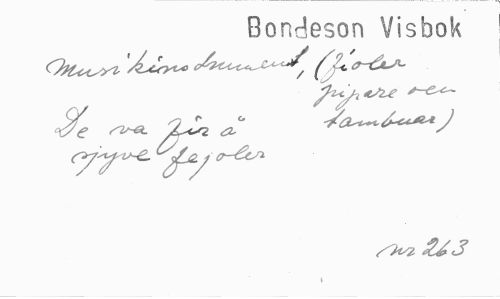 Bondeson Visbok
Musikinstrument, (fioler
pipare och
tambuar)
De va fir å
sjyve fejoler
nr 263